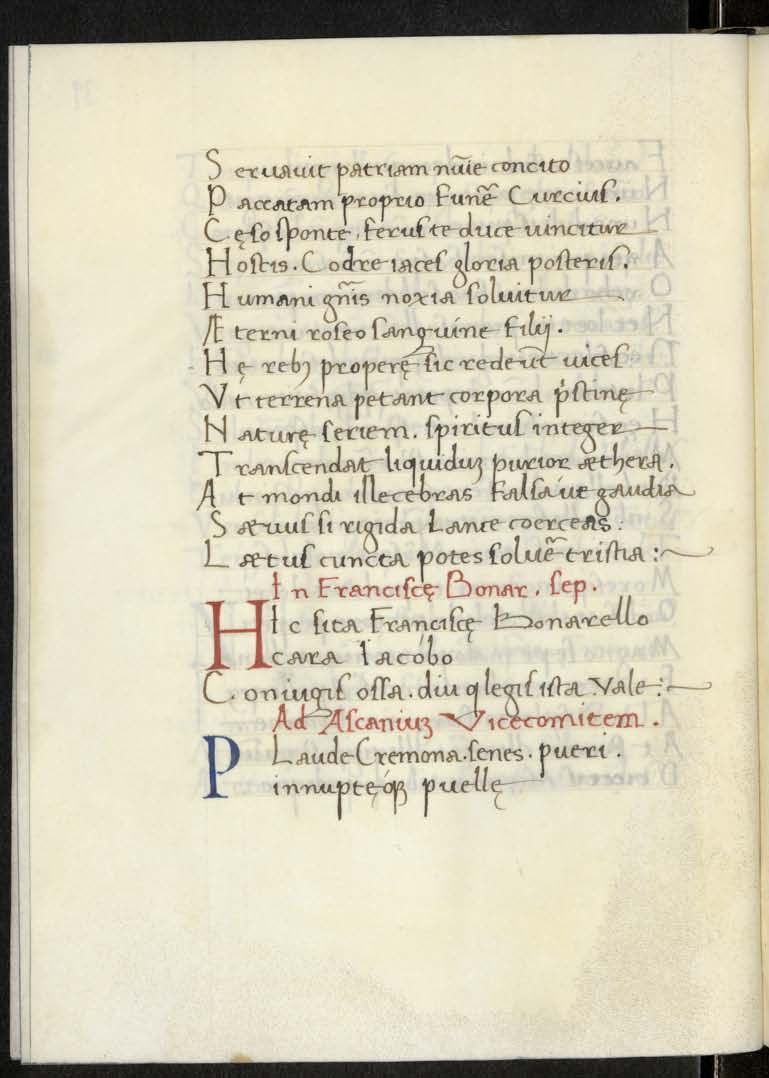 Seruauit patriam nũie concito
Paccatam proprio funẽ Curcius.
Cęso sponte. ferus te duce uincitur
Hostis. Codre iaces gloria posteris.
Humani gñis noxia soluitur
Æterni roseo sanguine filij.
Hę rebꝫ properę sic redeũt uices
Vt terrena petant corpora p̍stinę
Naturę seriem. spiritus integer
Transcendat liquiduꝫ purior æthera.
At mondi illecebras falsa ue gaudia
Sæuus si rigida lance coerceas:
Lætus cuncta potes soluẽ tristia:
In Franciscę Bonar. sep.
HIc sita Franciscę Bonarello
cara Iacobo
Coniugis ossa. diu q legis ista. Vale:
Ad Ascaniuꝫ Vicecomitem.
PLaude Cremona. senes. pueri.
innuptęqꝫ puellę